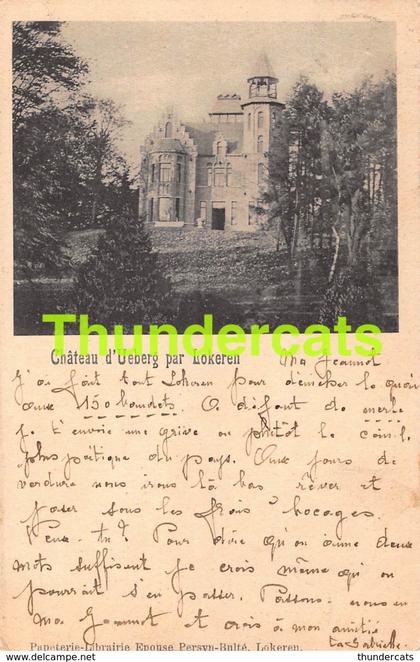 Thundercats
Château d'Ueberg par Lokeren
Ma Jeannot
J'ai fait tout Lokeren pour dénicher le quoi
150 A défaut de merle
je t'envoie une grive ou plutôt le coin le
plus poétique du pays. Aux jours de
verdure nous irons là bas rêver et
jaser sous les frais bocages
Veux-tu? Pour dire qu'on aime deux
mots suffisent je crois même qu'on
pourrait s'en passer. Passons-nous en
Ma Jeannot et crois à mon amitié
ta Gabrielle
Papeterie-Librairie Epouse Persyn-Bulté, Lokeren.
www.delcampe.net
thundercats